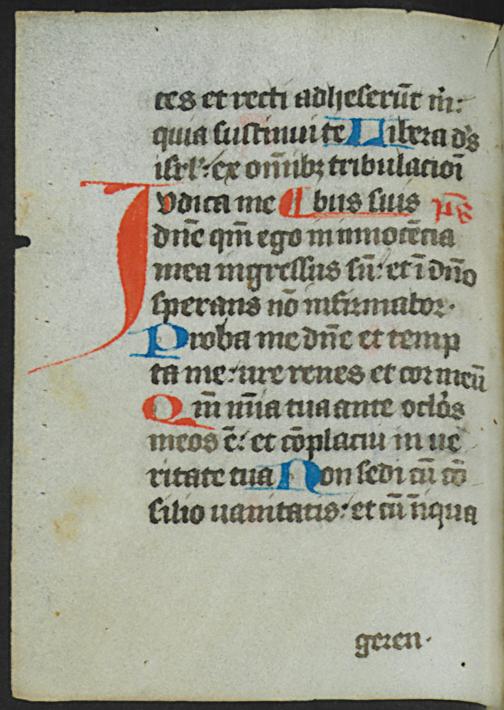 tes et recti adheserūt m̄:
quia sustinui te Libera ds̄
isrl̄: ex om̄ibꝫ tribulacioī
Iudica me ¶ bus suis p̄s
dn̄e qm̄ ego in innocētia
mea ingressus sū: et ī dn̄o
sperans nō infirmabor.
Proba me dn̄e et temp
ta me: ure renes et cor meū
Qm̄ mīa tua ante oclōs
meos ē: et cōplacui in ue
ritate tua Non sedi cū cō
silio uanitatis: et cū īiqua
geren.